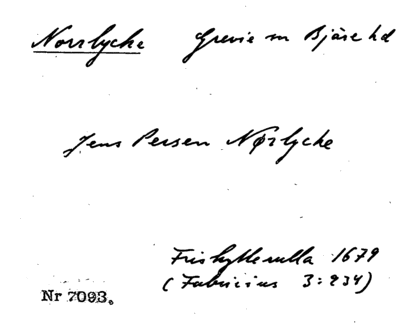 Norrlycke Grevie sn Bjäre hd
Jens Persen Nørlycke
Friskytterulla 1679
(Fabricius 3:234)
Nr 7093.